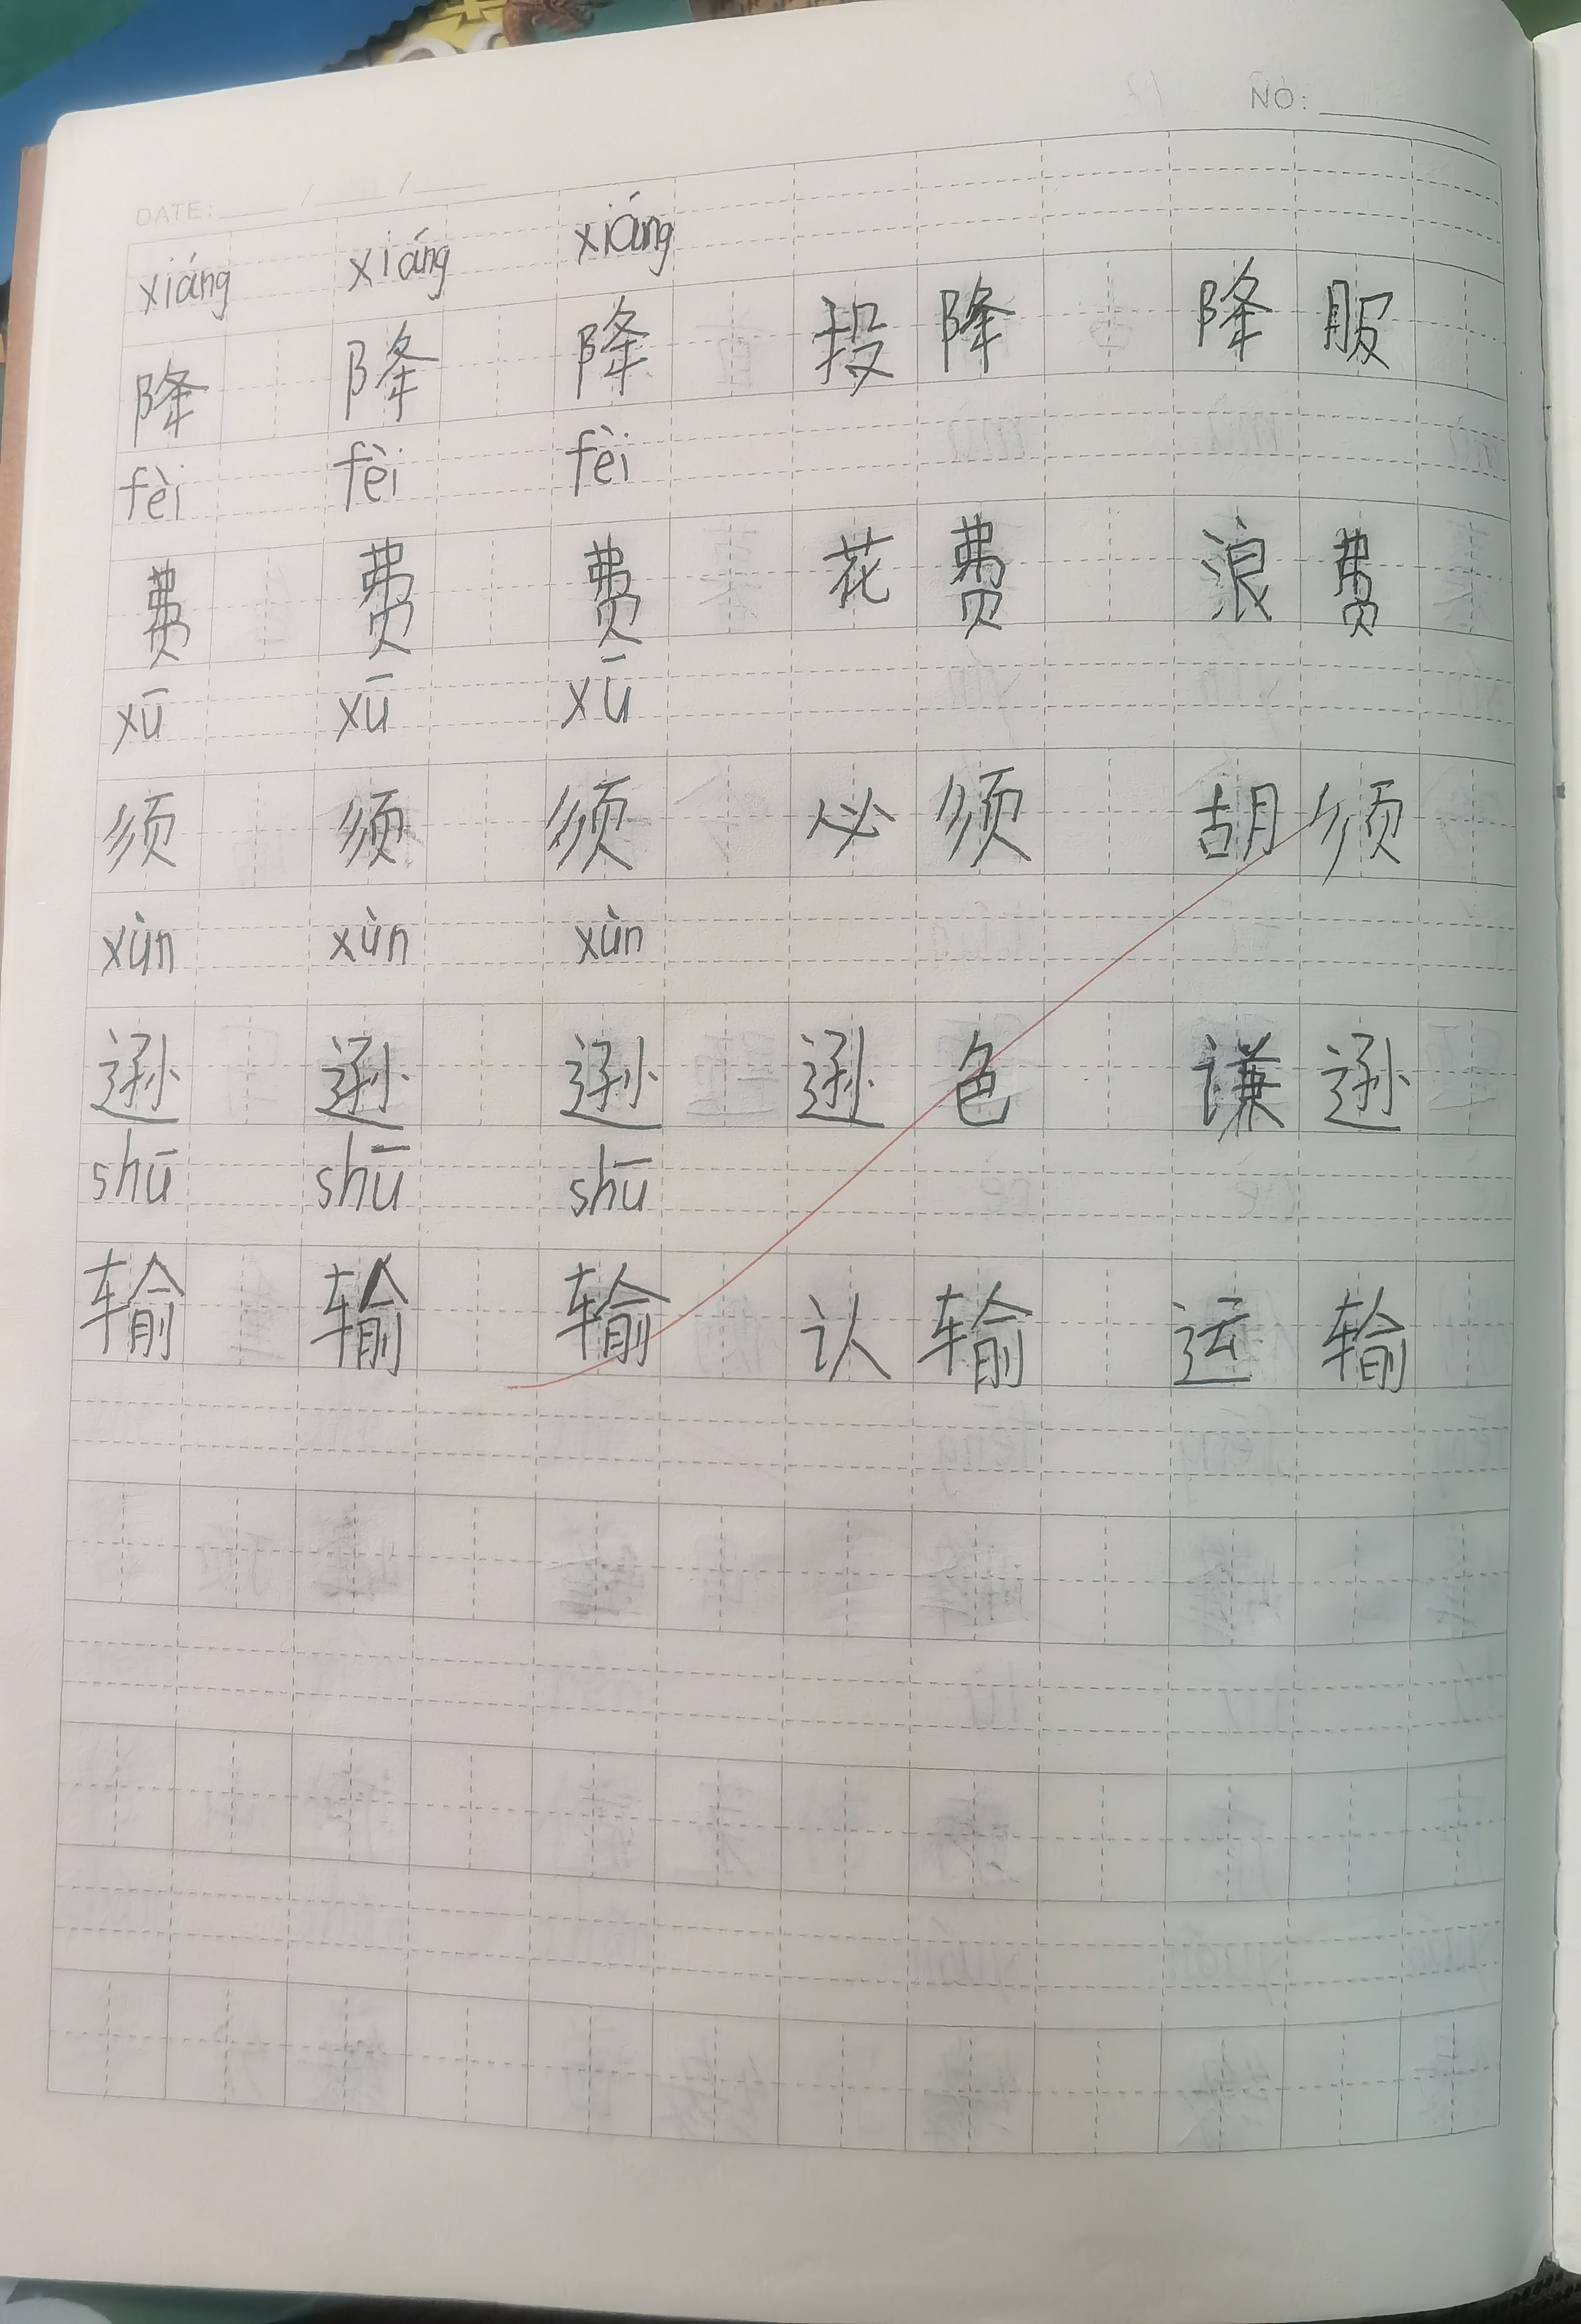 NO:
DATE: / /
xiáng xiáng xiáng
降 降 降 投降 降服
fèi fèi fèi
费 费 费 花费 浪费
xū xū xū
须 须 须 必须 胡须
xùn xùn xùn
逊 逊 逊 逊色 谦逊
shū shū shū
输 输 输 认输 运输